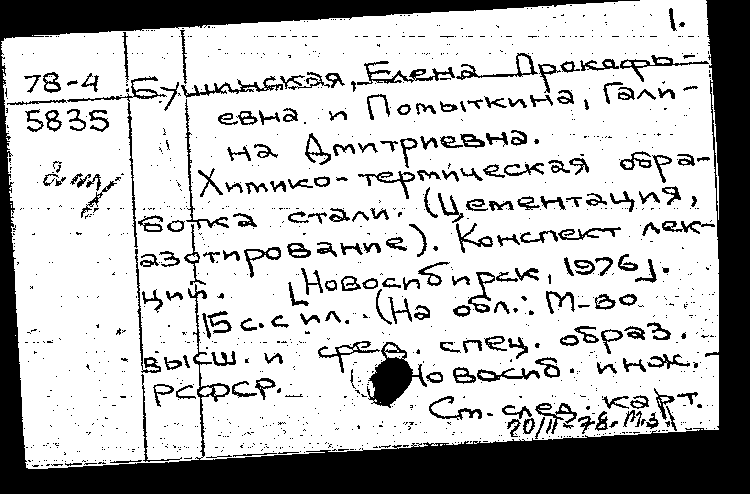 1.
78-4
5835
2 экз
Бушинская, Елена Прокафь-
евна и Помыткина, Гали-
на Дмитриевна.
Химико-термическая обра-
ботка стали. (Цементация,
азотирование). Конспект лек-
ций. [Новосибирск, 1976].
15 с. с ил. (На обл.: М-во
высш. и сред. спец. образ.
РСФСР. Новосиб. инж.-
См. след. карт.
20/II-78. М.З.